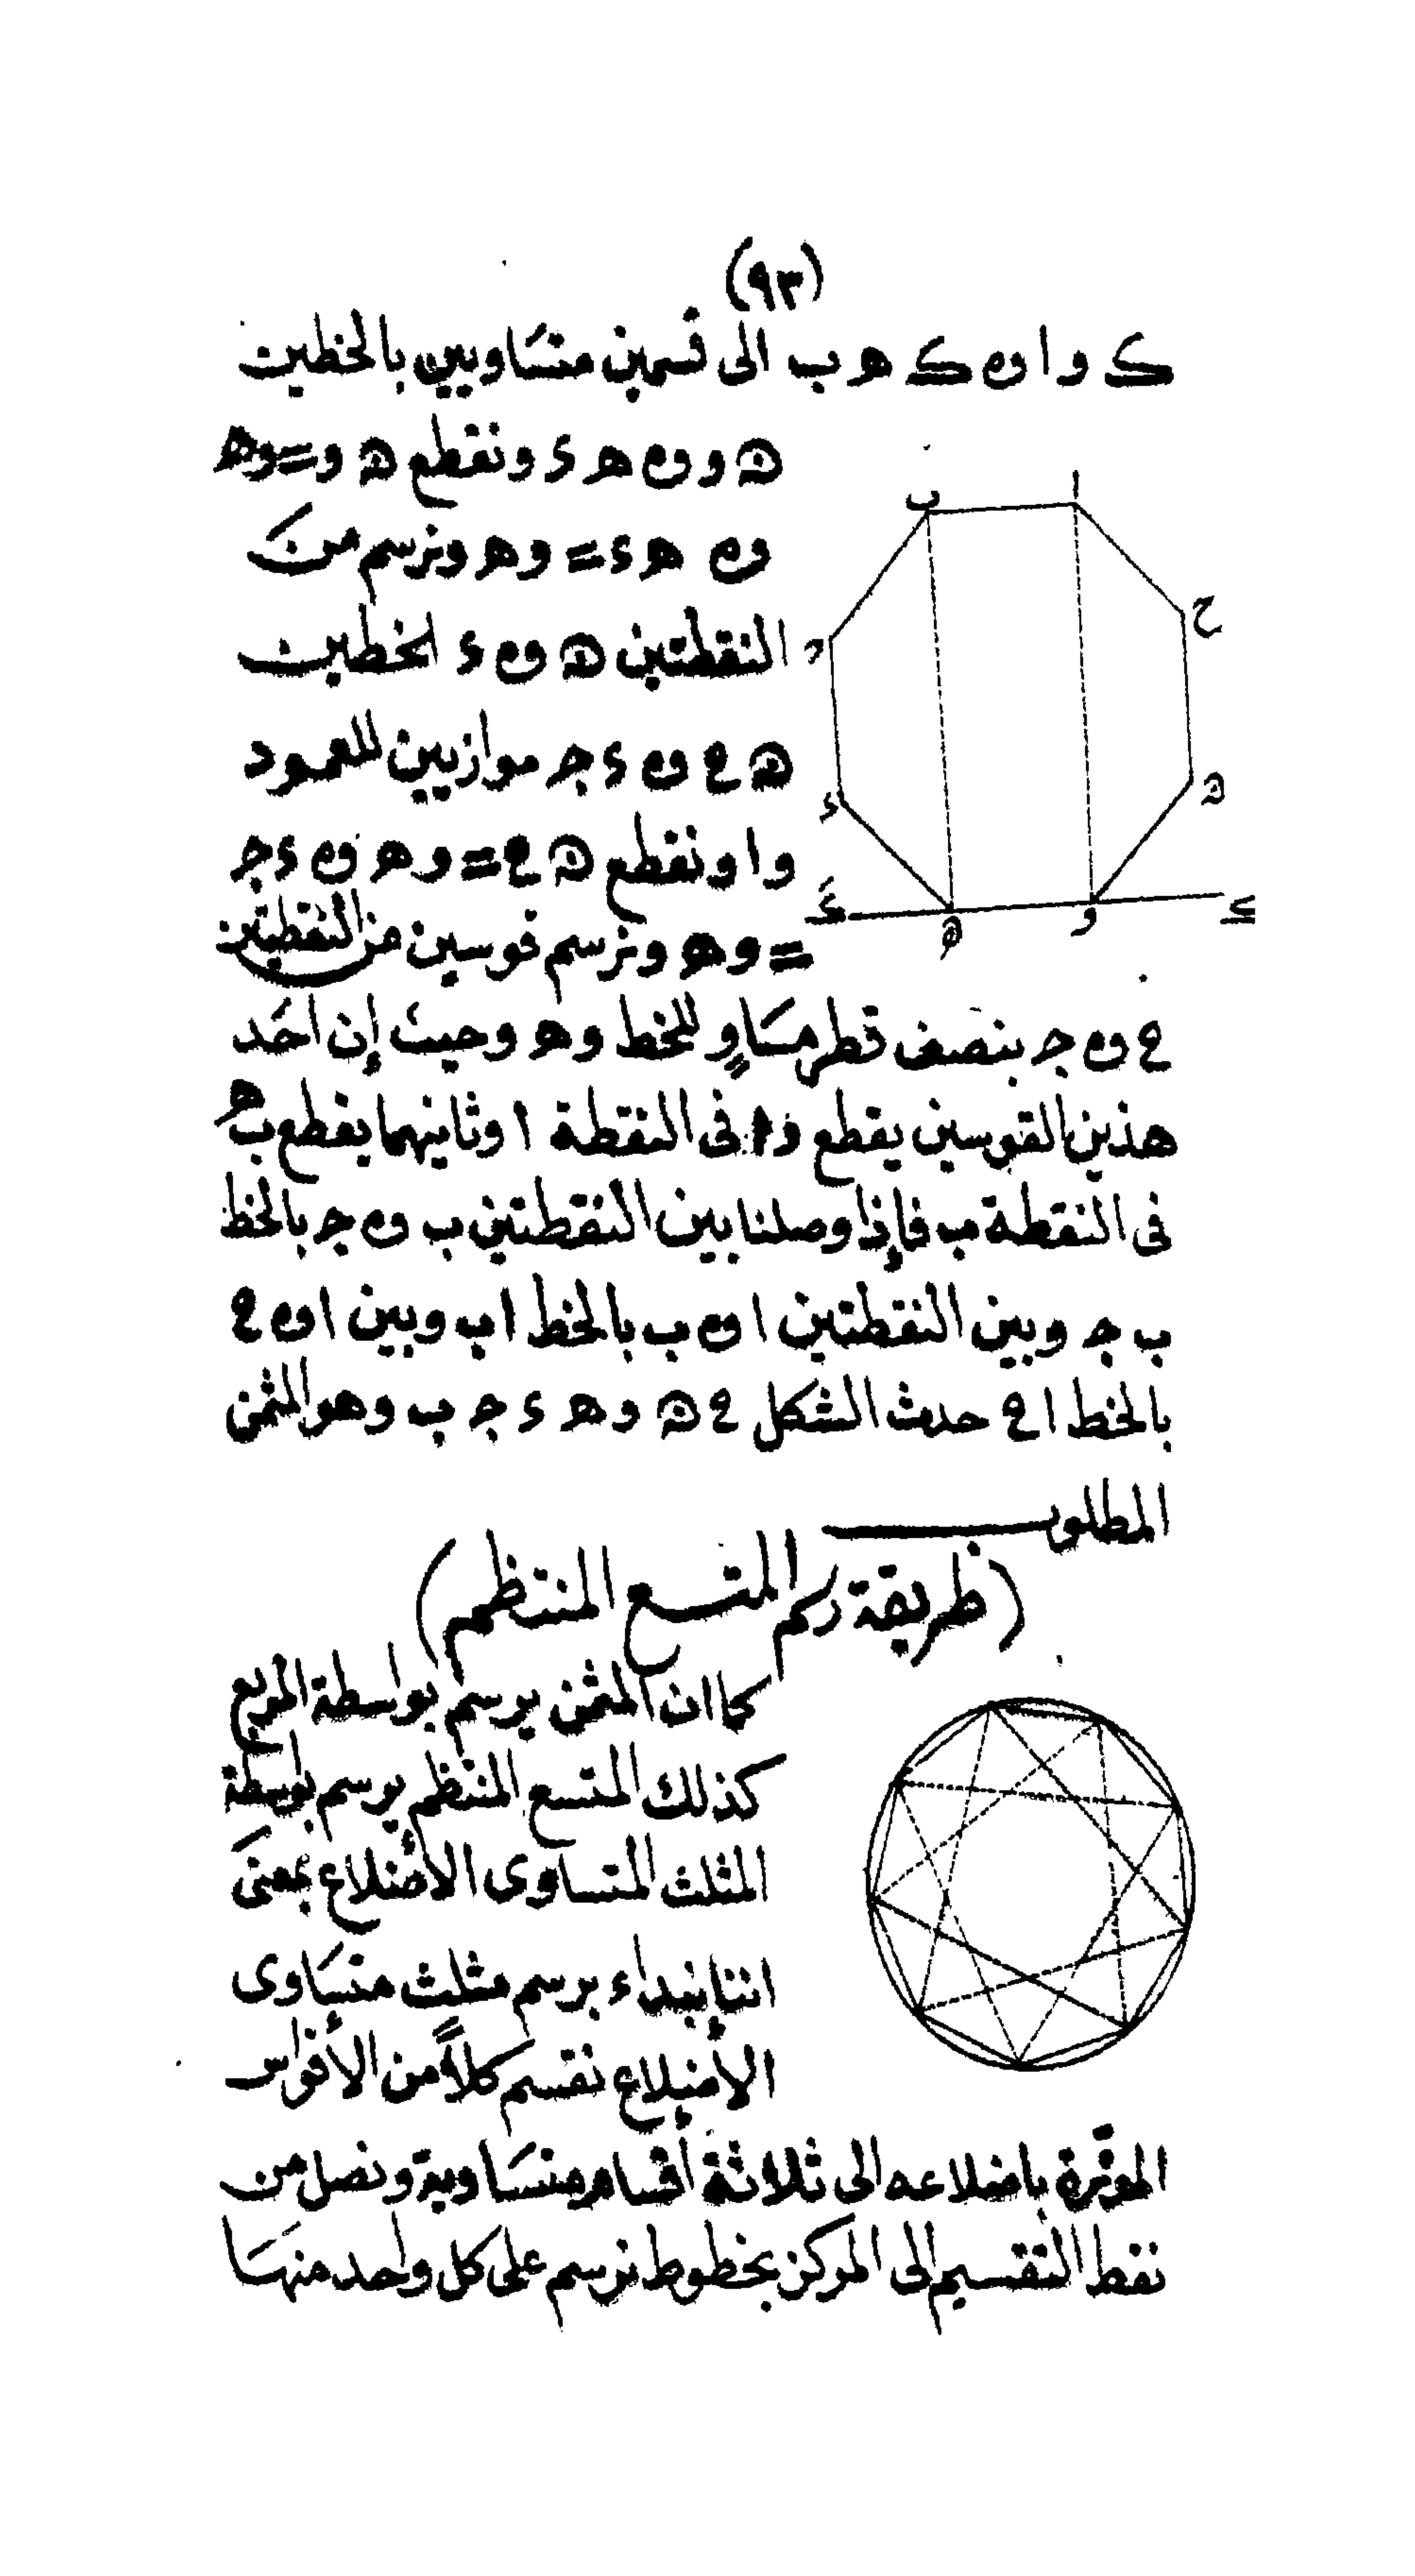 (٩٣)
ک و ا و ک ه ب الى قسمين متساويين بالخطين
ن و و ه ء ونقطع ن و = و ه
و ه ء = و ه ونرسم من
النقطتين ن و ء الخطين
ن ح و ء ج موازيين للعمود
و ا ونقطع ن ح = و ه و ء ج
= و ه ونرسم قوسين من النقطتين
ح و ج بنصف قطر مساوٍ للخط و ه وحيث إن احد
هذين القوسين يقطع و ا فى النقطة ا وثانيهما يقطع ب ه
فى النقطة ب فإذا وصلنا بين النقطتين ب و ج بالخط
ب ج وبين النقطتين ا و ب بالخط ا ب وبين ا و ح
بالخط ا ح حدث الشكل ح ن و ه ء ج ب وهو المثمن
المطلوب
(طريقة رسم المتسع المنتظم)
كما ان المثمن يرسم بواسطة المربع
كذلك المتسع المنتظم يرسم بواسطة
المثلث المتساوى الأضلاع بمعنى
اننا نبداء برسم مثلث متساوى
الأضلاع نقسم كلاً من الأقواس
الموترة باضلاعه الى ثلاثة أقسام متساوية ونصل من
نقط التقسيم الى المركز بخطوط نرسم على كل واحد منها
ب
ا
ح
ن
و
ه
ء
ج
ک
ک